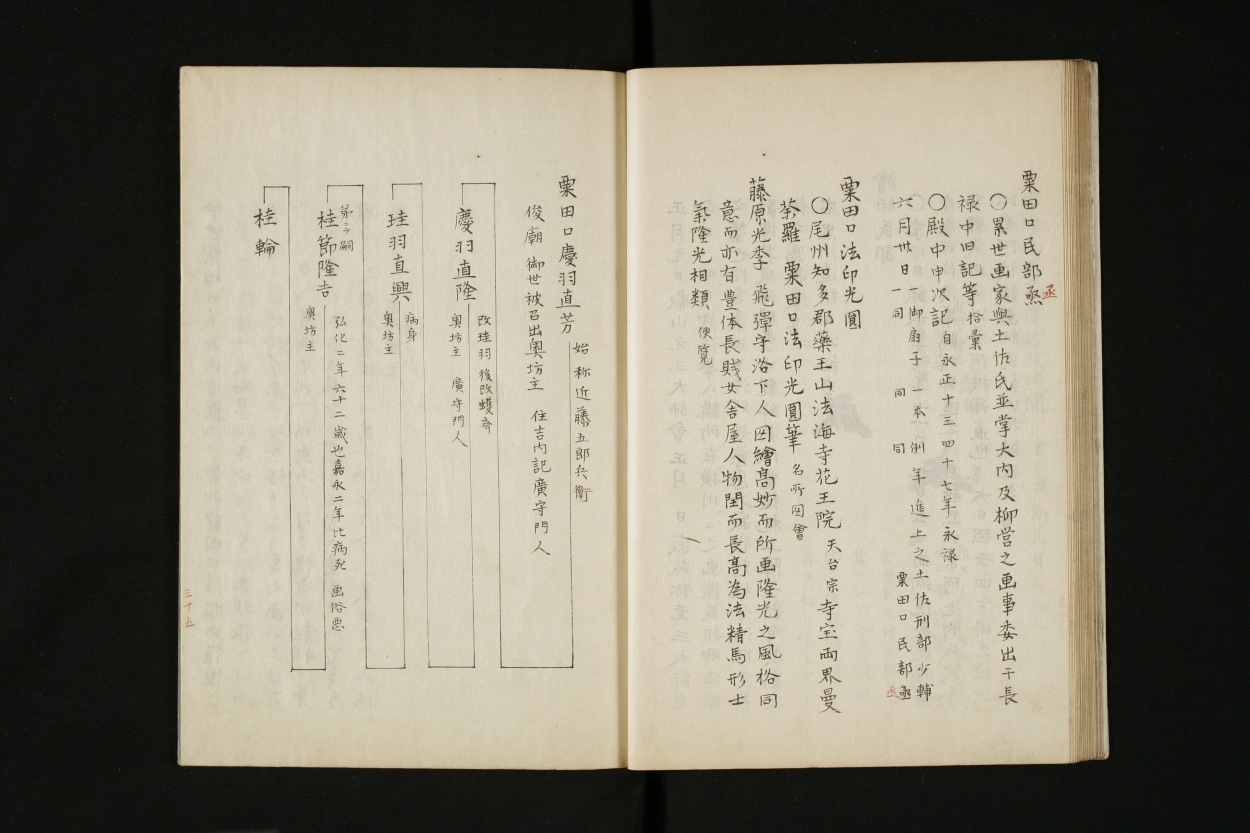 粟田口民部亟
丞
〇累世画家與土佐氏並掌大内及柳営之画事委出于長
禄中旧記等 拾彙
〇殿中申次記 自永正十三四十七年永禄
六月卅日一御扇子一本 例年進上之 土佐刑部少輔
一同 同 同 粟田口民部亟
丞
粟田口法印光圓
〇尾州知多郡藥王山法海寺花王院 天台宗 寺宝両界曼
荼羅 粟田口法印光圓筆 名所図會
藤原光季 飛彈守洛下人図繪髙妙而所画隆光之風格同
意而亦有豊体長賎女舎屋人物閏而長髙為法精馬形士
氣隆光相類 便覧
粟田口慶羽直芳 始称近藤五郎兵衛
俊廟 御世被召出奥坊主 住吉内記廣守門人
慶羽直隆 改珪羽後改蠖斎
奥坊主 廣守門人
珪羽直興 病身
奥坊主
弟ニ〆嗣
桂節隆吉 弘化二年六十二歳也嘉永二年比病死 画俗悪
奥坊主
桂輪
三十五